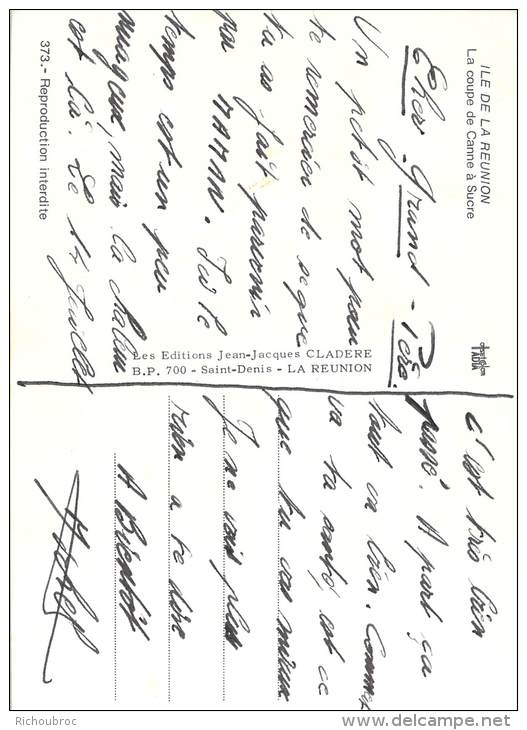 ILE DE LA REUNION
La coupe de Canne à Sucre
Cher Grand-Père.
Un petit mot pour
te remercier de ce que
tu as fait parvenir
par MAMAN. Ici le
temps est un peu
nuageux, mais la chaleur
est là. Le 14 Juillet
373.- Reproduction interdite
Les Editions Jean-Jacques CLADERE
B.P. 700 - Saint-Denis - LA REUNION
c'est très bien
passé. A part ça
tout va bien. Comment
va ta santé, est ce
que tu vas mieux
Je ne vois plus
rien a te dire
A Bientôt
Richoubroc
delcampe.net